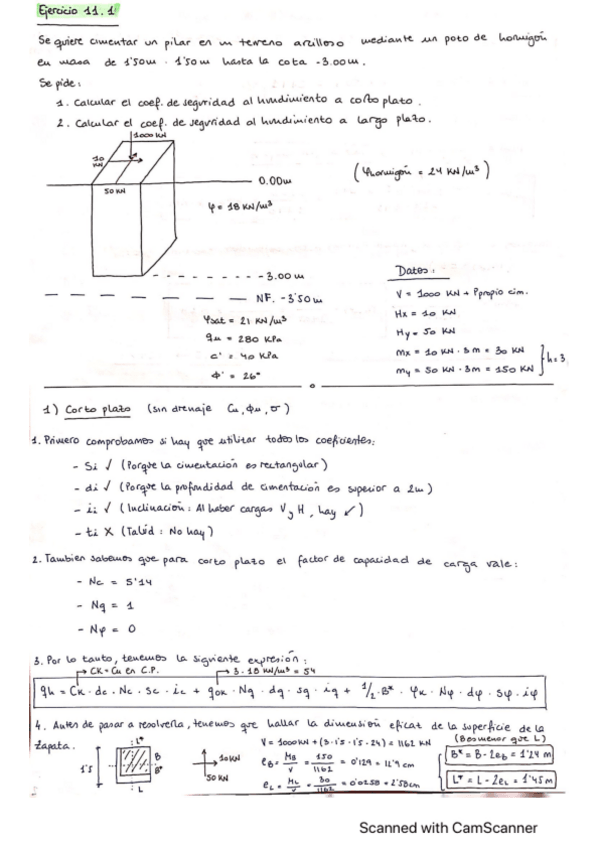 Ejercicio 11.1
Se quiere cimentar un pilar en un terreno arcilloso mediante un pozo de hormigón
en masa de 1'50m · 1'50m hasta la cota -3.00m.
Se pide:
1. Calcular el coef. de seguridad al hundimiento a corto plazo.
2. Calcular el coef. de seguridad al hundimiento a largo plazo.
1000 KN
10 KN
50 KN
0.00m
(φhormigón = 24 KN/m³)
φ = 18 KN/m³
-3.00 m
NF. -3'50m
φsat = 21 KN/m³
qu = 280 KPa
c' = 40 KPa
Φ' = 26°
Datos:
V = 1000 KN + Ppropio cim.
Hx = 10 KN
Hy = 50 KN
mx = 10 KN · 3m = 30 KN
my = 50 KN · 3m = 150 KN
h=3
1) Corto plazo (sin drenaje Cu, ϕu, σ)
1. Primero comprobamos si hay que utilizar todos los coeficientes:
- Si ✓ (Porque la cimentación es rectangular)
- di ✓ (Porque la profundidad de cimentación es superior a 2m)
- ii ✓ (Inclinación: Al haber cargas V y H, hay ✓)
- ti X (Talúd: No hay)
2. Tambien sabemos que para corto plazo el factor de capacidad de carga vale:
- Nc = 5'14
- Nq = 1
- Nφ = 0
3. Por lo tanto, tenemos la siguiente expresión:
CK = Cu en C.P.
3·18 KN/m³ = 54
qh = CK · dc · Nc · sc · ic + qok · Nq · dq · sq · iq + 1/2 · B* · φk · Nφ · dφ · sφ · iφ
4. Antes de pasar a resolverla, tenemos que hallar la dimensión eficaz de la superficie de la
zapata.
(B es menor que L)
1'5
L*
B
B*
L
10KN
50 KN
V = 1000KN + (3·1'5·1'5·24) = 1162 KN
eB = MB/V = 150/1162 = 0'129 = 12'9 cm
eL = ML/V = 30/1162 = 0'0258 = 2'58cm
B* = B - 2eb = 1'24 m
L* = L - 2eL = 1'45 m
Scanned with CamScanner